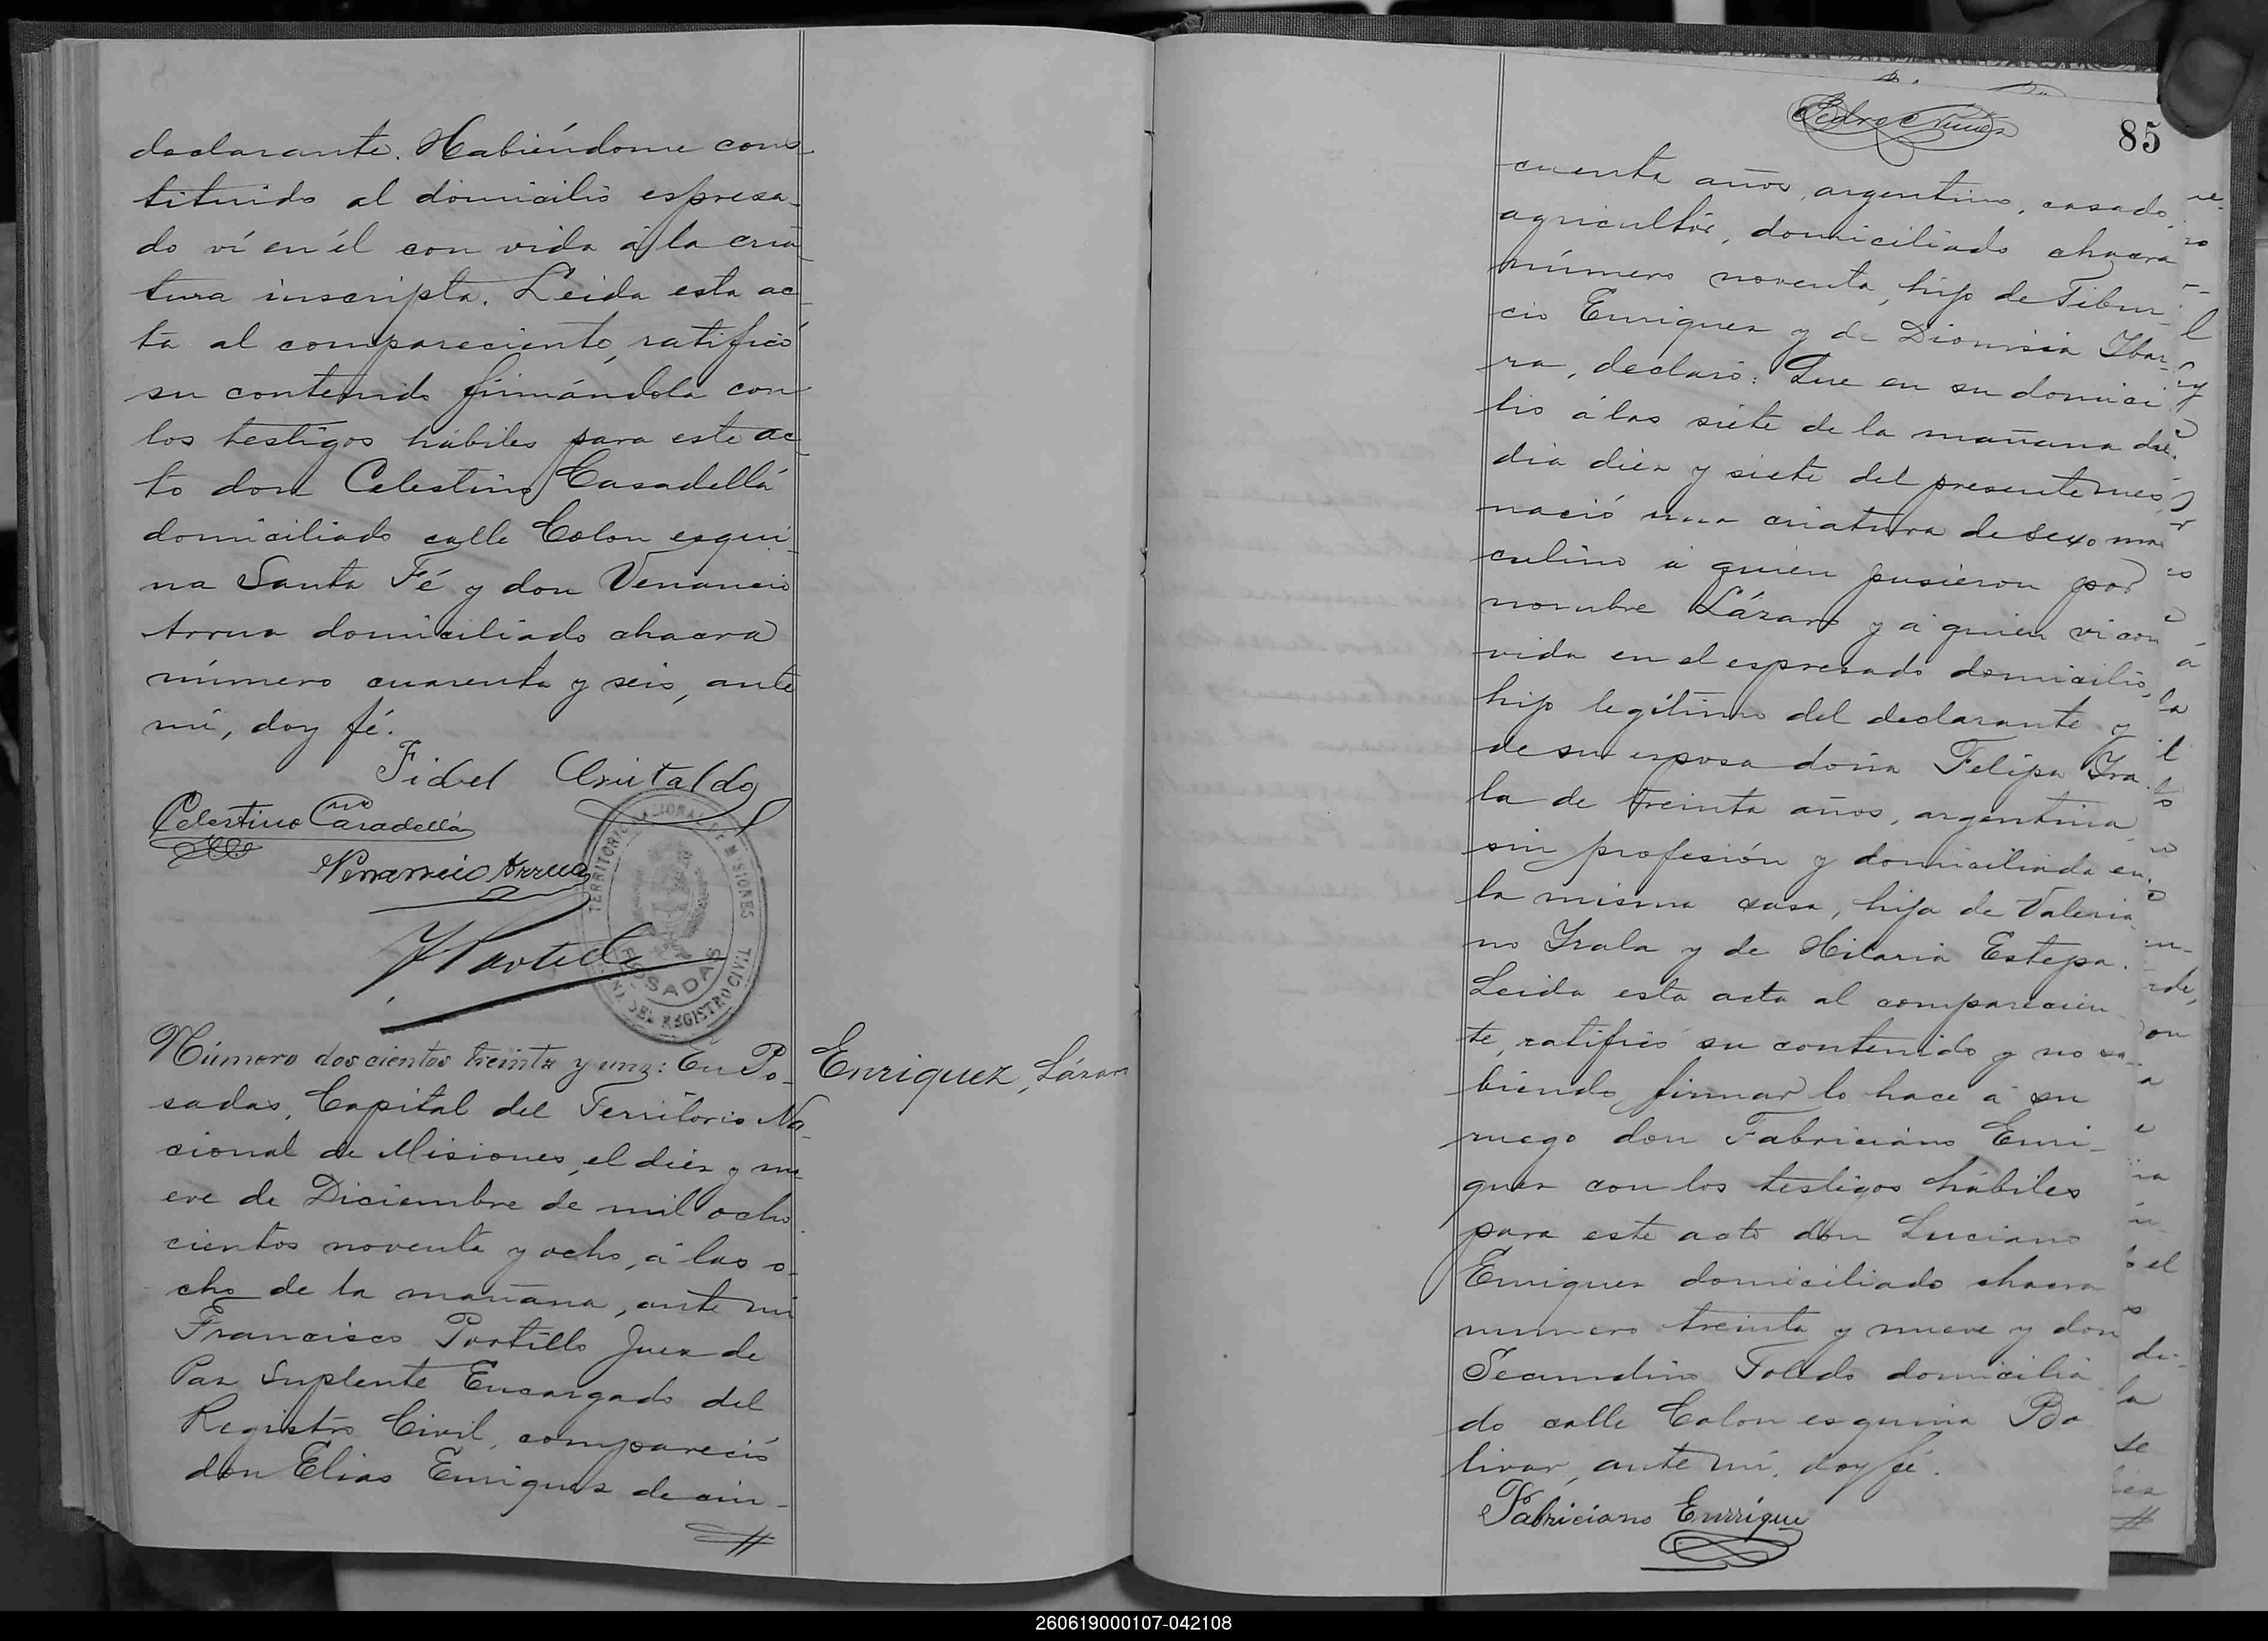 declarante. Habiéndome cons-
tituido al domicilio espresa-
do ví en él con vida á la cria-
tura inscripta. Leida esta ac-
ta al compareciente, ratificó
su contenido firmándola con
los testigos hábiles para este ac-
to don Celestino Casadellá
domiciliado calle Colon esqui-
na Santa Fé y don Venancio
Arrua domiciliado chacra
número cuarenta y seis, ante
mi, doy fé.
Fidel
Celestino Casadellá
Venancio Arrua
TERRITORIO NACIONAL DE MISIONES
POSADAS
OFICINA DEL REGISTRO CIVIL
Número doscientos treinta y uno: En Po-
sadas, Capital del Territorio Na-
cional de Misiones, el diez y nu-
eve de Diciembre de mil ocho-
cientos noventa y ocho, á las o-
cho de la mañana, ante mi
Francisco Portillo Juez de
Paz Suplente Encargado del
Registro Civil, compareció
don Elias Enriquez de cin-
Enriquez, Lázaro
85
cuenta años, argentino, casado,
agricultor, domiciliado chacra
número noventa, hijo de Tibur-
cio Enriquez y de Dionisia Ybar-
ra, declaró: Que en su domici
lio á las siete de la mañana del
dia diez y siete del presente mes,
nació una criatura de sexo mas
culino á quien pusieron por
nombre Lázaro y á quien vi con
vida en el espresado domicilio,
hijo legítimo del declarante y
de su esposa doña Felipa Yra-
la de treinta años, argentina
sin profesión y domiciliada en
la misma casa, hija de Valeria-
no Yrala y de Hilaria Estepa.
Leida esta acta al comparecien-
te, ratificó su contenido y no sa-
biendo firmar lo hace á su
ruego don Fabriciano Enri-
quez con los testigos hábiles
para este acto don Luciano
Enriquez domiciliado chacra
numero treinta y nueve y don
Secundino Toledo domicilia
do calle Colon esquina Bo
livar, ante mi, doy fé.
Fabriciano Enrrique
260619000107-042108